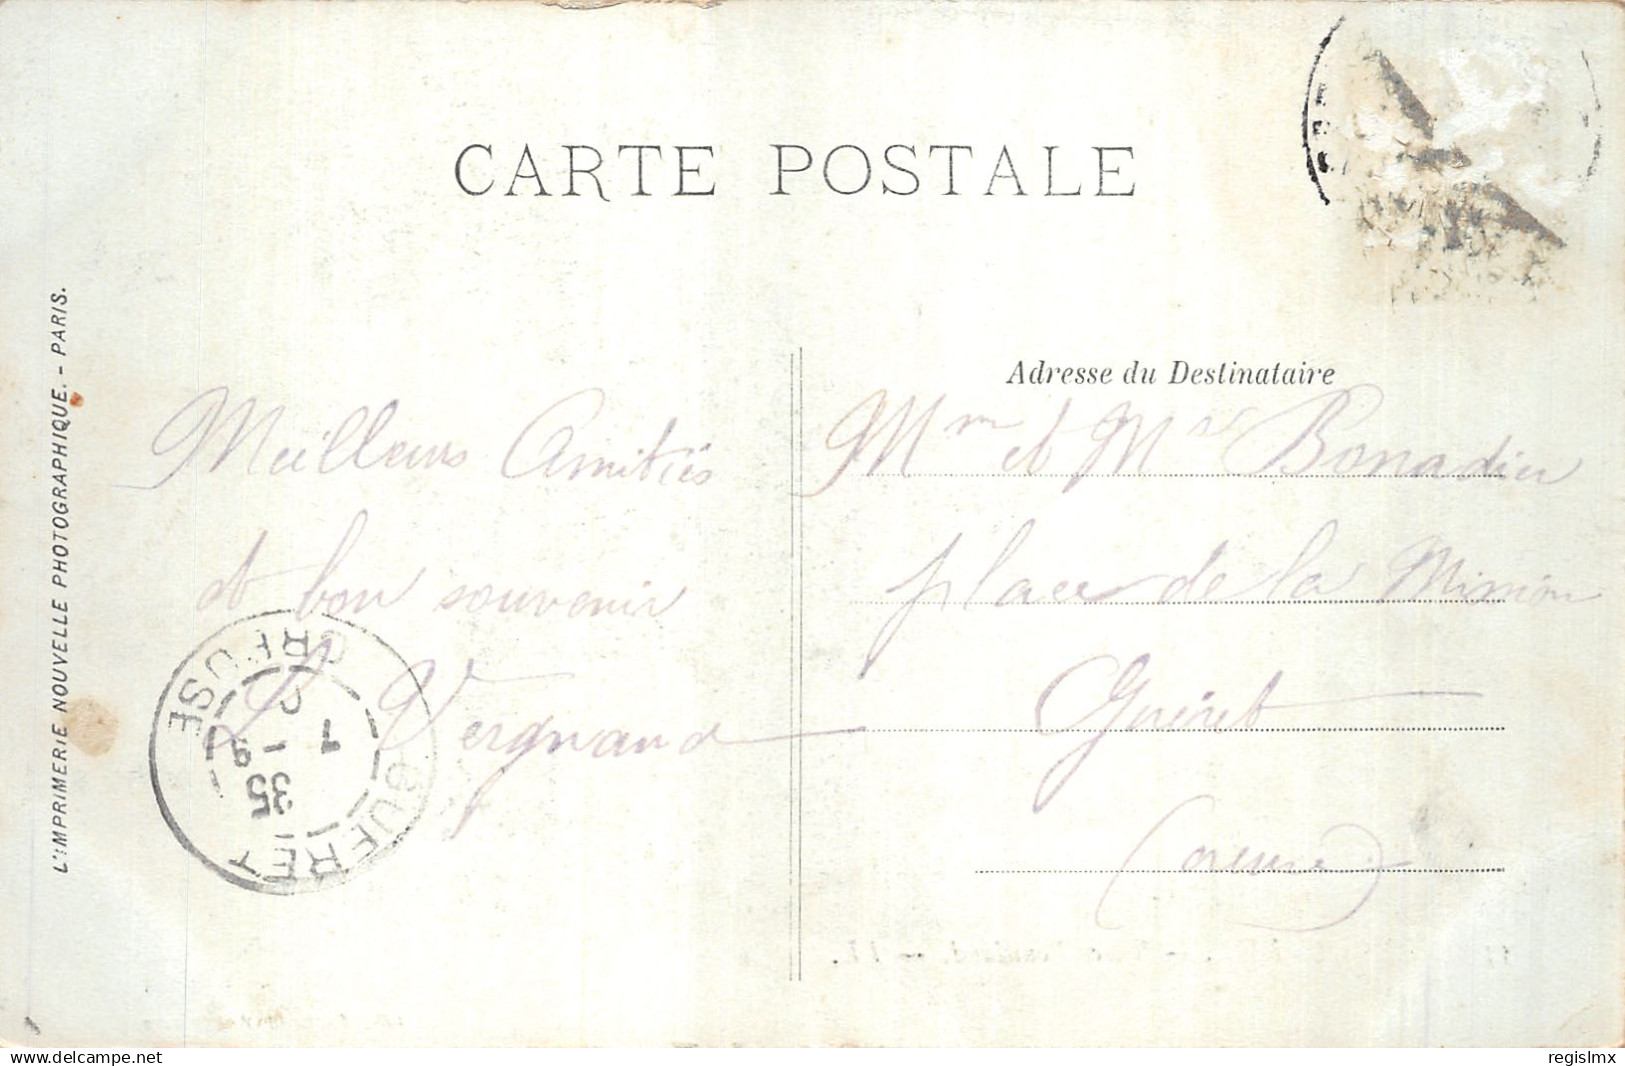 CARTE POSTALE
L'IMPRIMERIE NOUVELLE PHOTOGRAPHIQUE. - PARIS.
Meilleurs Amitiés
et bon souvenir
Vergnaud
GUERET
CREUSE
7
- 9
35
Adresse du Destinataire
Mme et Mr Bonadieu
place de la Mission
Guéret
(Creuse)
delcampe.net
regislmx